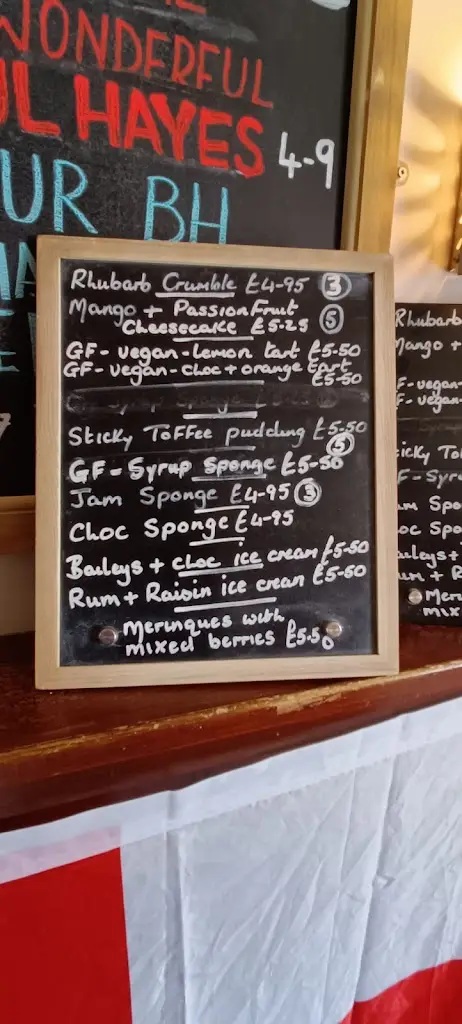 WONDERFUL
UL HAYES 4-9
UR BH
Rhubarb Crumble £4-95 3
Mango + PassionFruit
Cheesecake £5-25 5
GF- vegan-lemon tart £5-50
GF- vegan-choc + orange tart
£5-50
Sticky Toffee pudding £5-50
5
GF-Syrup Sponge £5-50
Jam Sponge £4-95 3
Choc Sponge £4-95
Baileys + choc ice cream £5-50
Rum + Raisin ice crean £5-50
Merinques with
mixed berries £5.50
Rhubarb
Mango +
F-vegan-
F-vegan-
icky To
F-Syru
am Spo
oc Spo
aileys+
um + R
Meri
mix